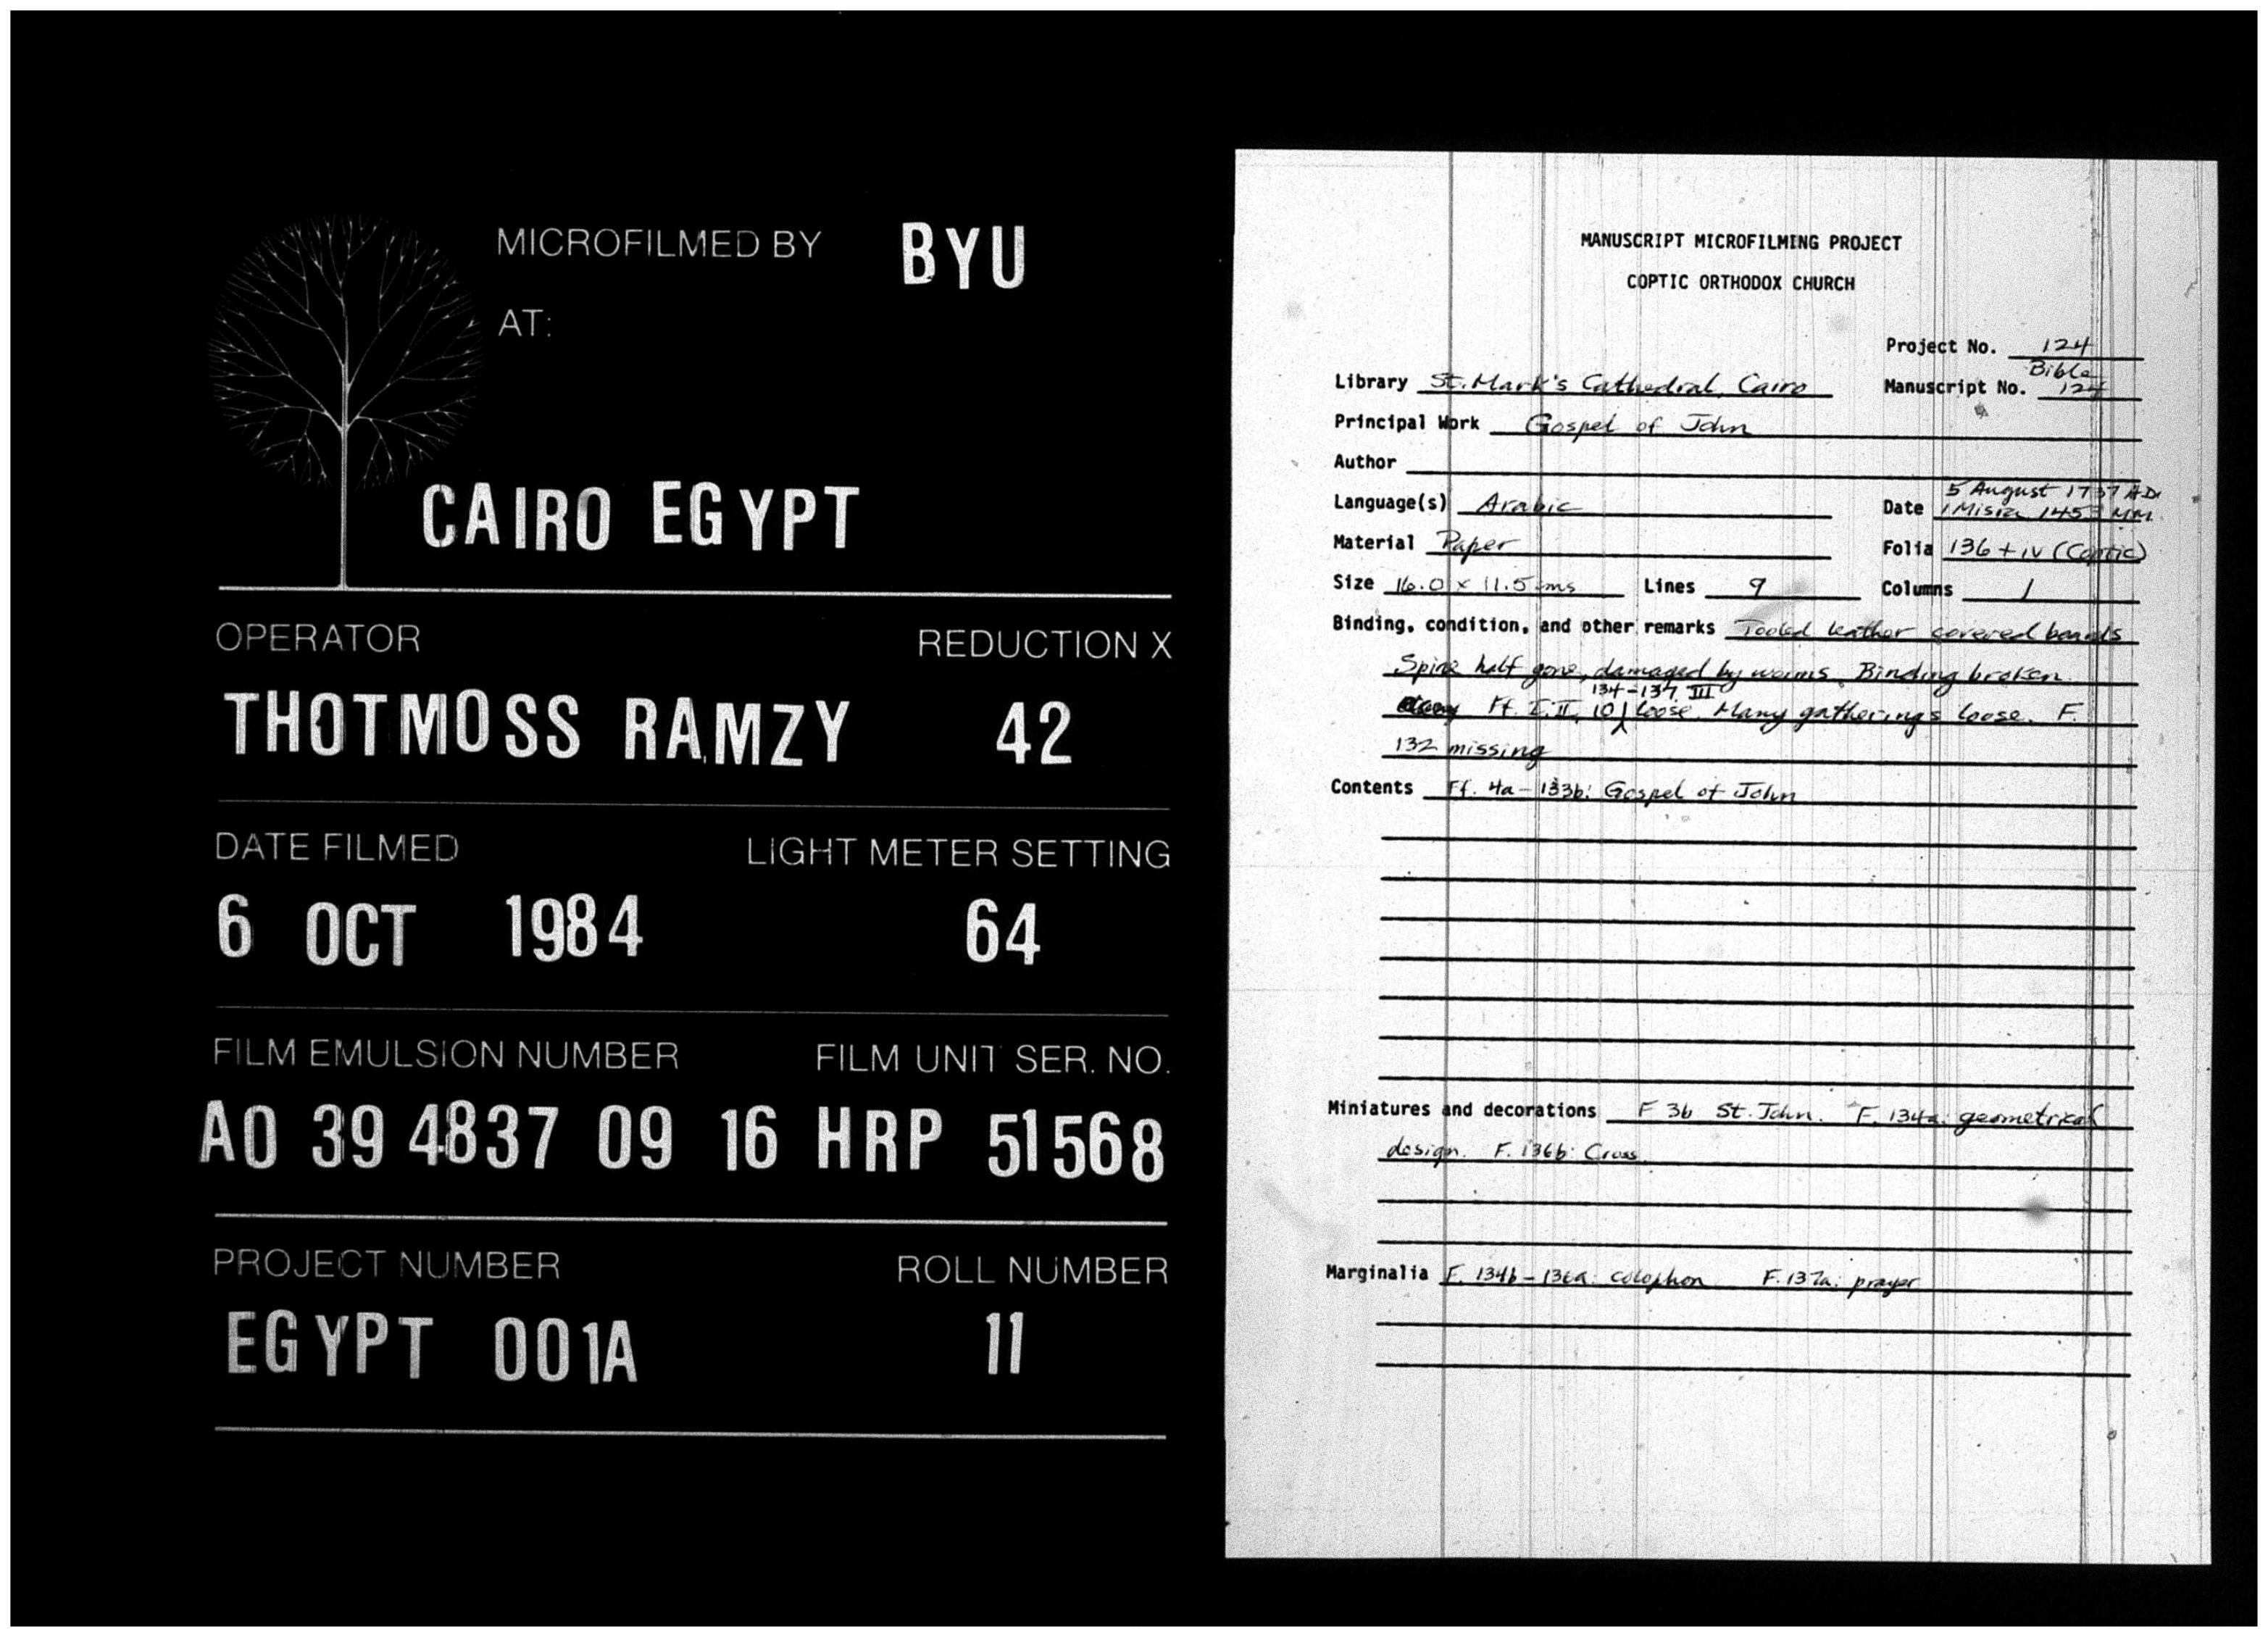 MICROFILMED BY BYU
AT:
CAIRO EGYPT
OPERATOR REDUCTION X
THOTMOSS RAMZY 42
DATE FILMED LIGHT METER SETTING
6 OCT 1984 64
FILM EMULSION NUMBER FILM UNIT SER. NO.
A0 39 4837 09 16 HRP 51568
PROJECT NUMBER ROLL NUMBER
EGYPT 001A 11
MANUSCRIPT MICROFILMING PROJECT
COPTIC ORTHODOX CHURCH
Project No. 124
Library St. Mark's Cathedral, Cairo Manuscript No. Bible 124
Principal Work Gospel of John
Author
5 August 1737 AD
Language(s) Arabic Date 1 Misra 1453 MM
Material Paper Folia 136 + iv (Coptic)
Size 16.0 x 11.5 cms Lines 9 Columns 1
Binding, condition, and other remarks Tooled leather covered boards
Spine half gone, damaged by worms. Binding broken.
134-137, III
Ff. I, II, 10 loose. Many gatherings loose. F.
132 missing
Contents Ff. 4a-133b: Gospel of John
Miniatures and decorations F 3b St. John. F. 134a: geometrical
design. F. 136b: Cross
Marginalia F. 134b-136a: colophon F. 137a: prayer